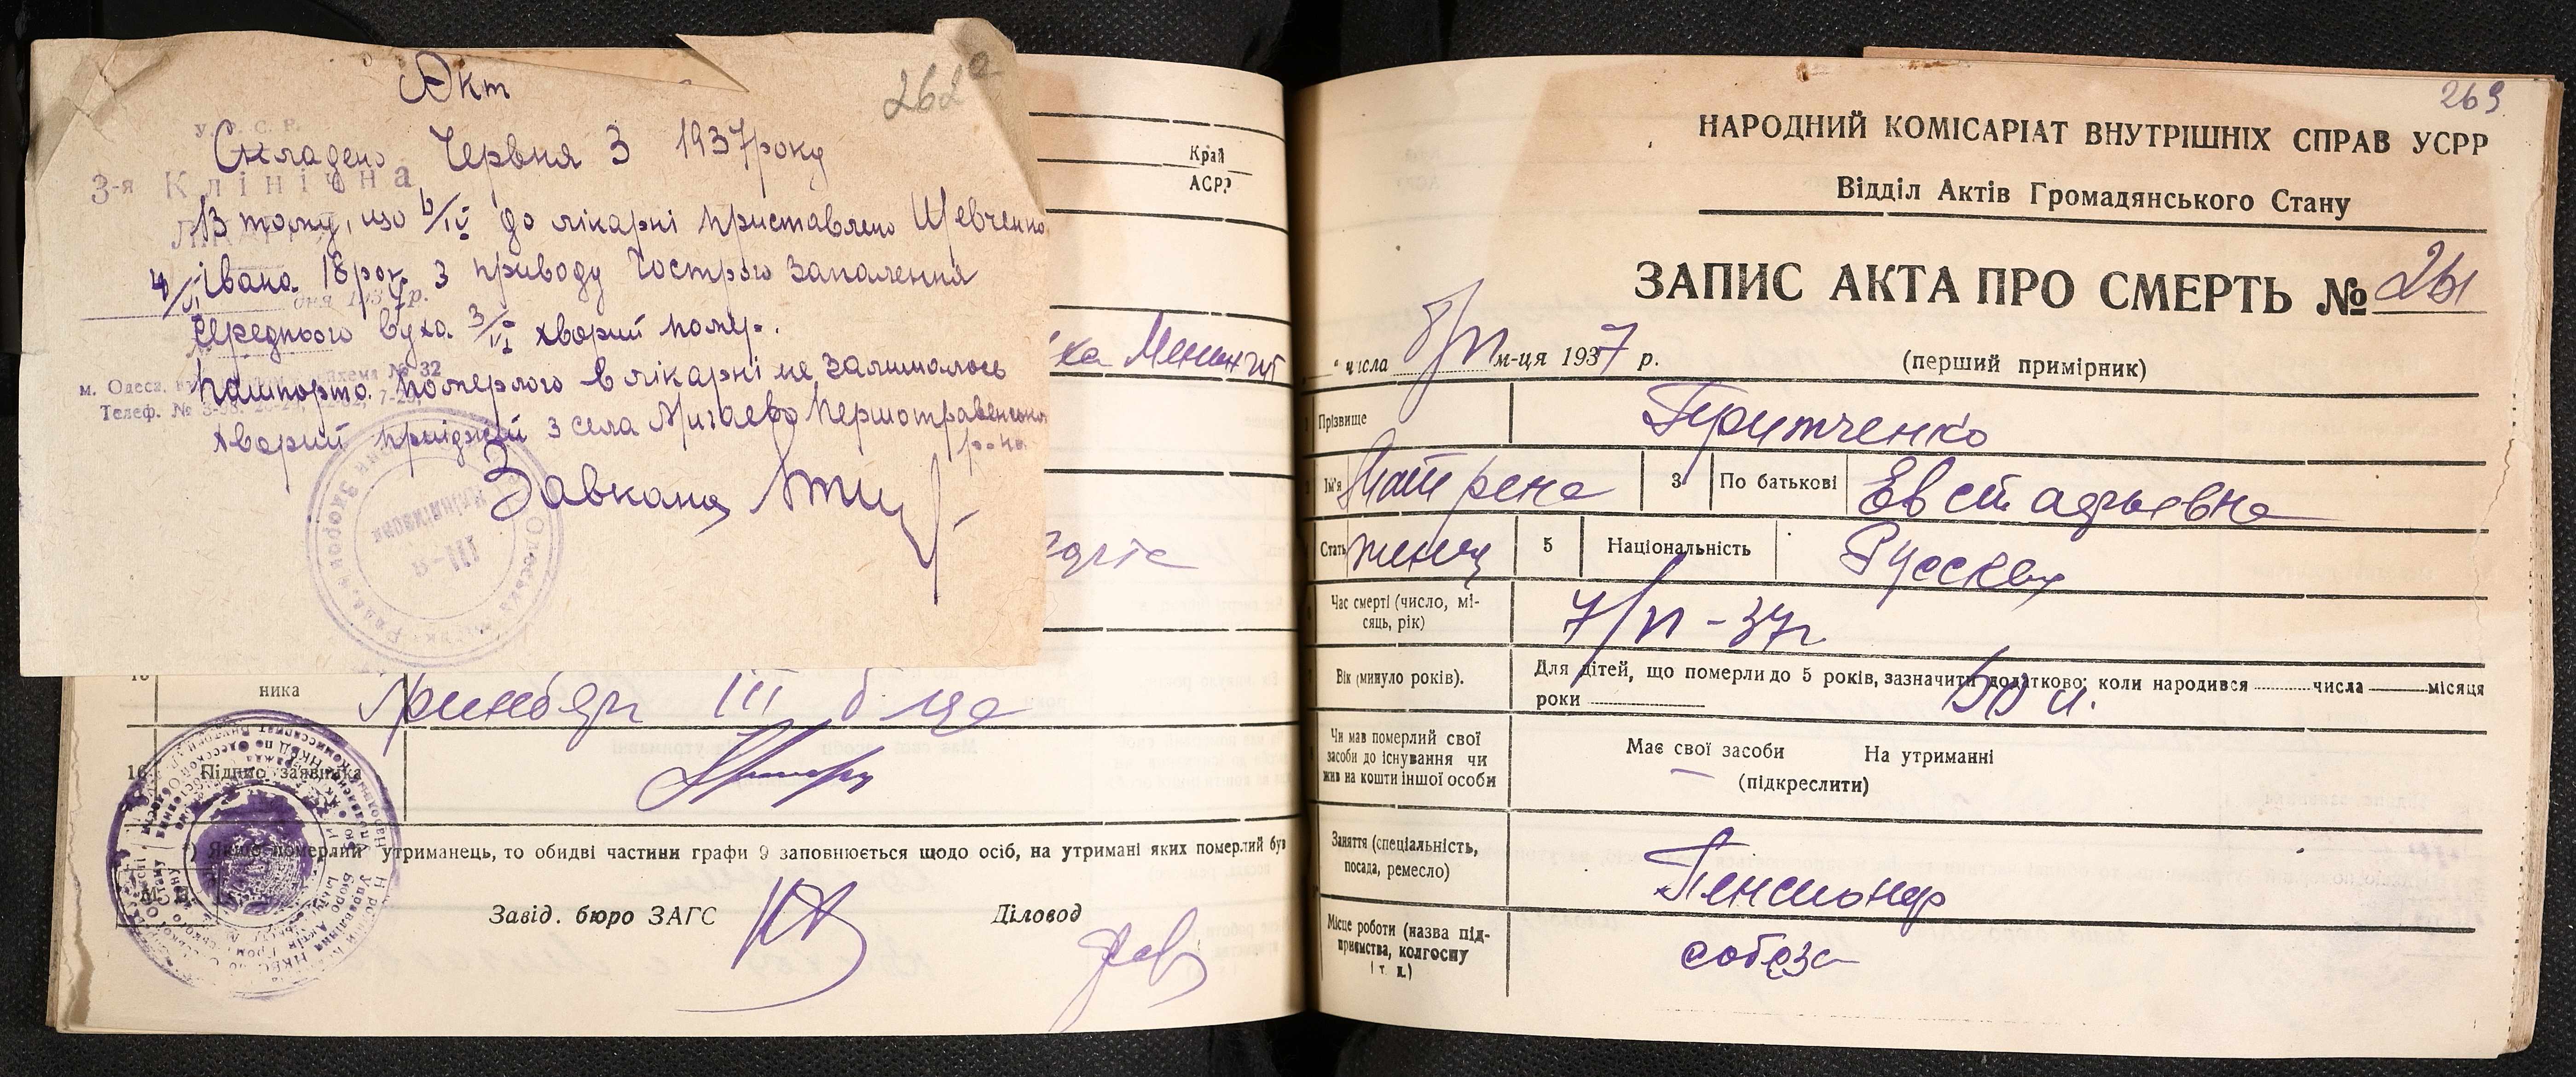 Акт
262а
У. Р. С. Р.
Складено Червня 3 1937 року
3-я Клінічна
В тому, що 6/IV до лікарні приставлено Шевченко
Івана 18 рок. З приводу Гострого запалення
4/VI дня 1937 р.
середнього вуха 3/VI хворий помер.
Пашпорта померлого в лікарні не залишалось
м. Одеса, № 32
Телеф. №
Хворий приїджий з села Мигаево Першотравенсько
р-на
Завканц
Край
АСРР
ка Менингит
ника
III б-ца
16
Підпис заявника
*) Якщо померлий утриманець, то обидві частини графи 9 заповнюється щодо осіб, на утримані яких померлий був
М. П.
Завід. бюро ЗАГС
Діловод
269
НАРОДНИЙ КОМІСАРІАТ ВНУТРІШНІХ СПРАВ УСРР
Відділ Актів Громадянського Стану
ЗАПИС АКТА ПРО СМЕРТЬ № 261
" числа 8/VI м-ця 1937 р.
(перший примірник)
Прізвище
Притченко
Ім'я Матрена 3 По батькові Евстафьевна
Стать женщ 5 Національність Русская
Час смерті (число, місяць, рік) 7/VI - 37 г
Вік (минуло років).
Для дітей, що померли до 5 років, зазначити додатково: коли народився числа місяця
роки
50 л.
Чи мав померлий свої засоби до існування чи жив на кошти іншої особи
Має свої засоби На утриманні
(підкреслити)
Заняття (спеціальність, посада, ремесло)
Пенсионер
Місце роботи (назва підприємства, колгоспу і т. д.)
собеза